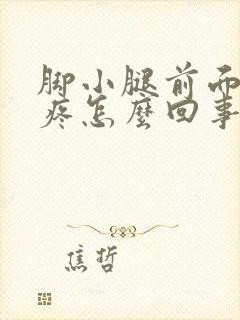 脚小腿前而
疼怎麼回事
焦哲